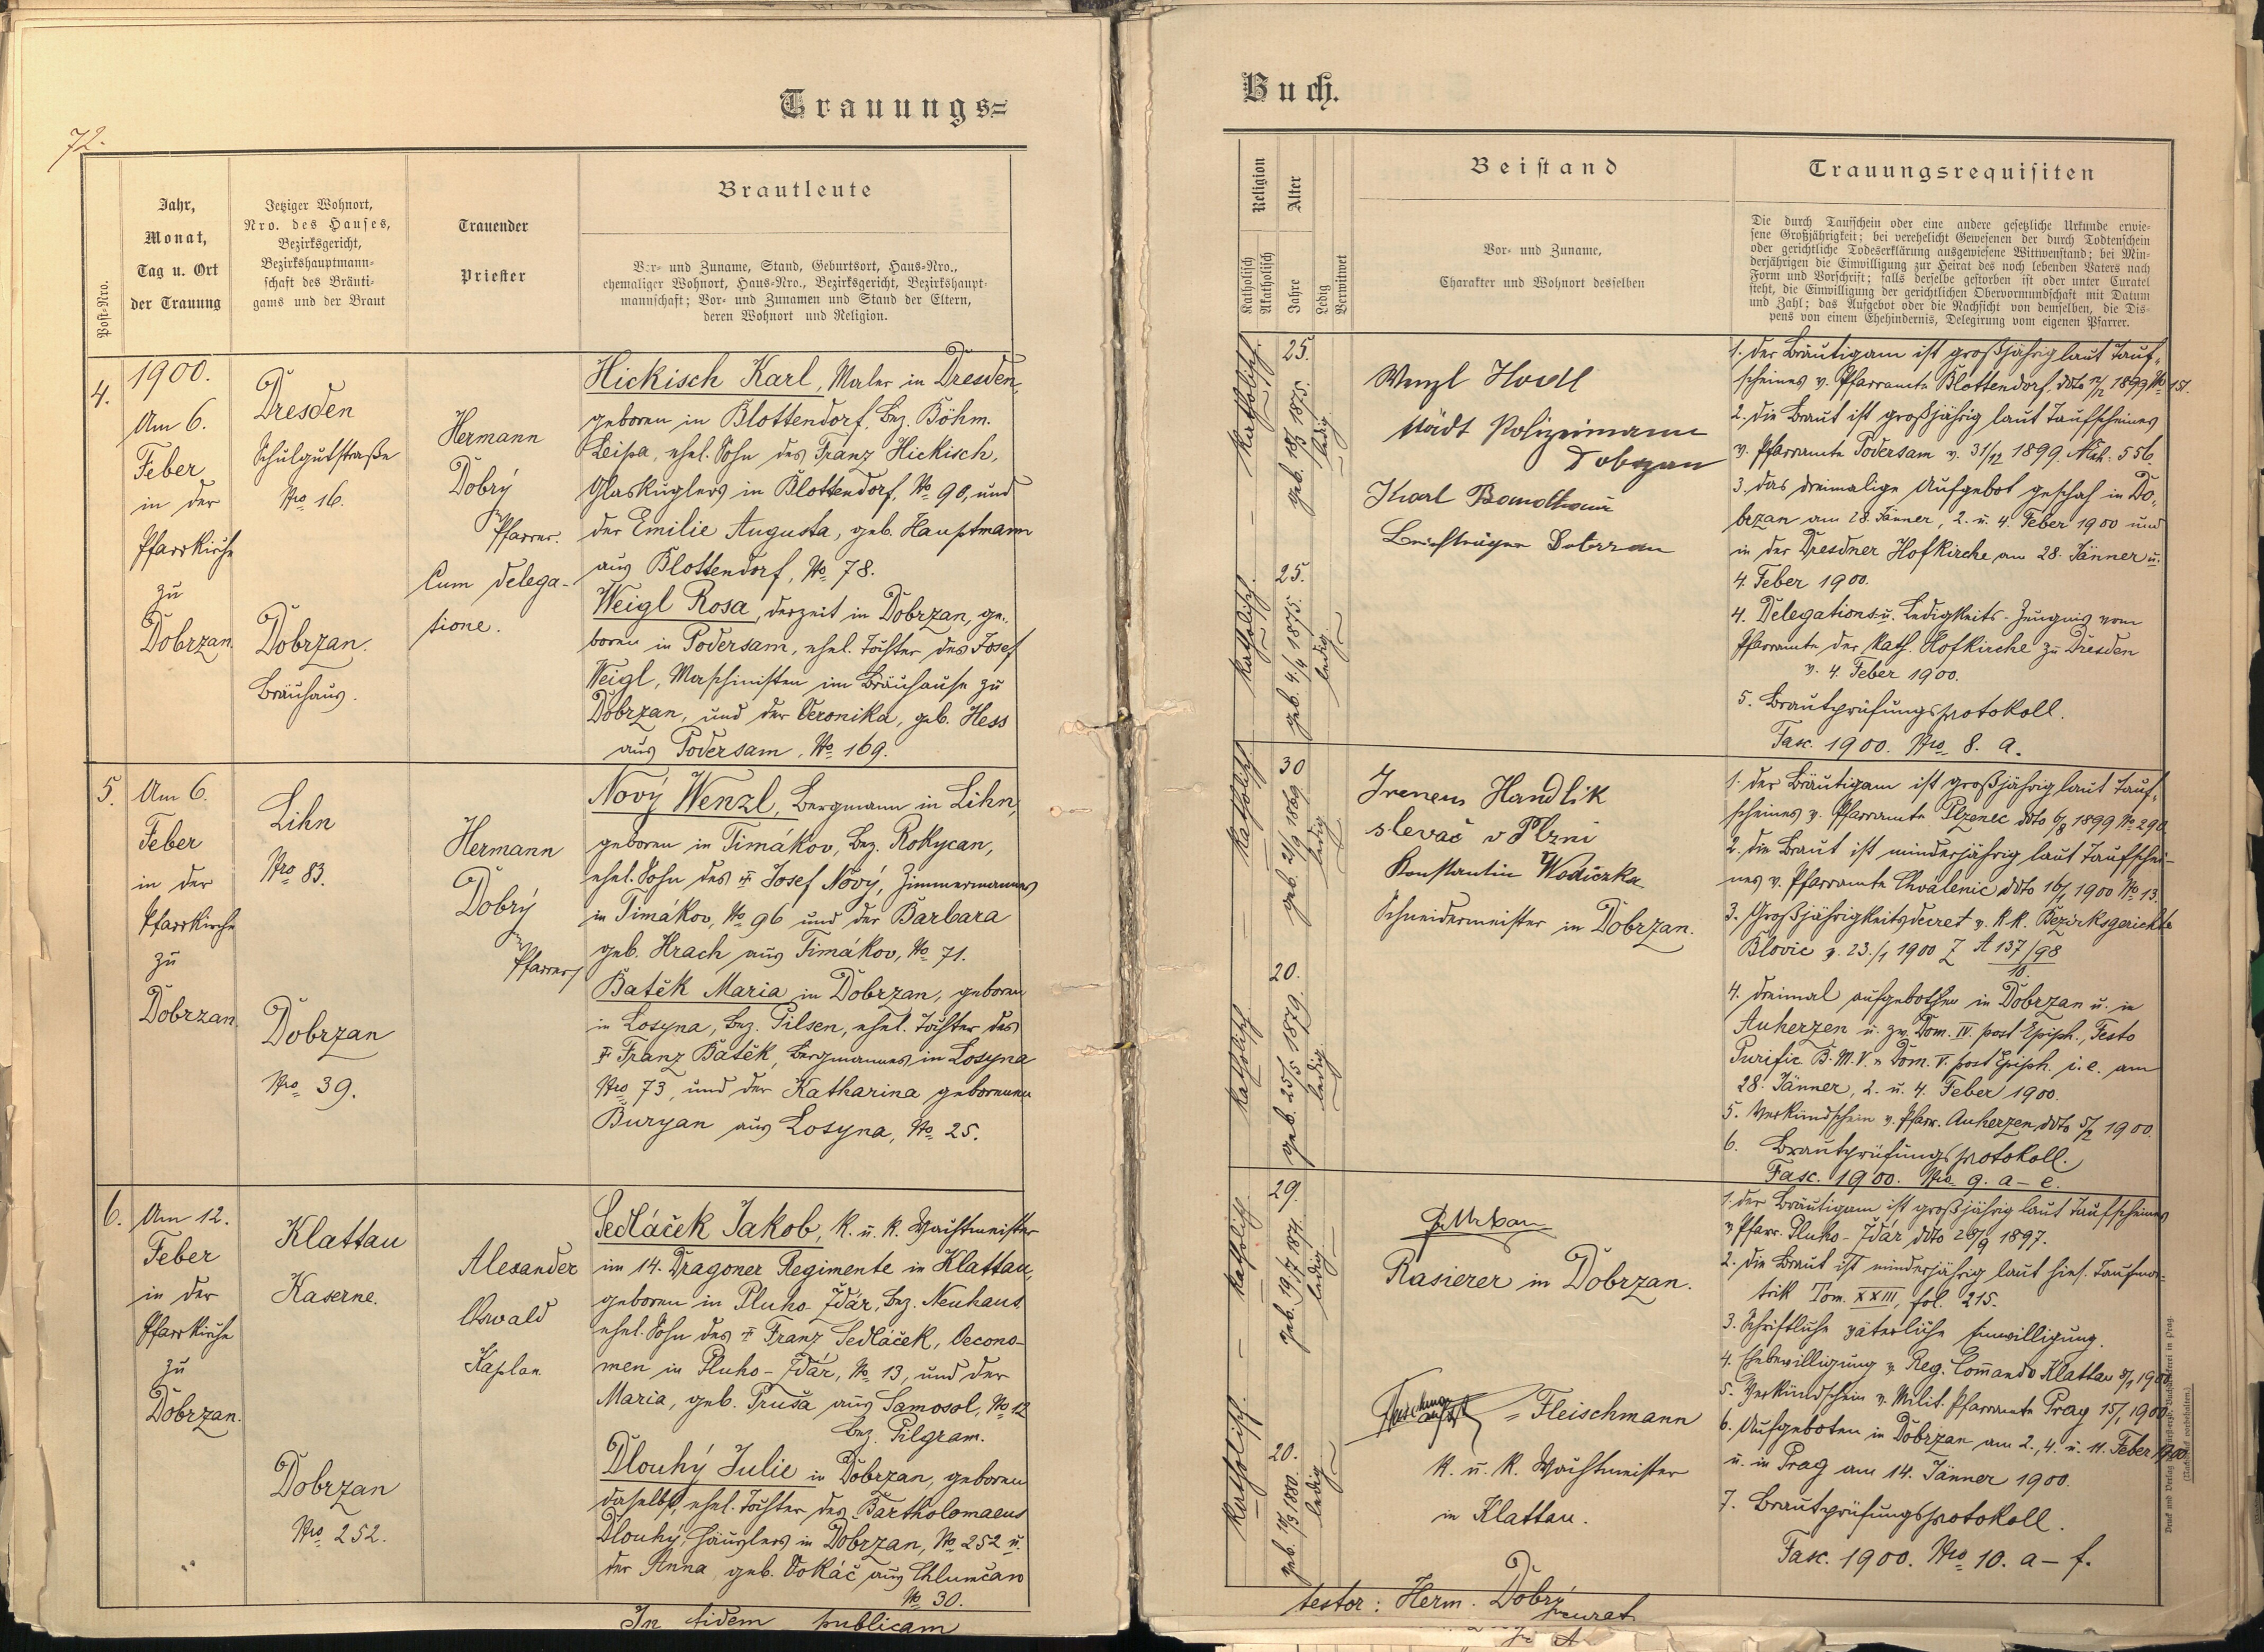 Trauungs=
72.
Post=Nro.
Jahr,
Monat,
Tag u. Ort
der Trauung
Jetziger Wohnort,
Nro. des Hauses,
Bezirksgericht,
Bezirkshauptmann=
schaft des Bräuti=
gams und der Braut
Trauender
Priester
Brautleute
Vor= und Zuname, Stand, Geburtsort, Haus=Nro.,
ehemaliger Wohnort, Haus=Nro., Bezirksgericht, Bezirkshaupt=
mannschaft; Vor= und Zunamen und Stand der Eltern,
deren Wohnort und Religion.
4.
1900.
Am 6.
Feber
in der
Pfarrkirche
zu
Dobrzan.
Dresden
Schulgutstraße
Nro 16.
Dobrzan.
Bräuhaus.
Hermann
Dobrý
Pfarrer.
Cum delega-
tione.
Hickisch Karl, Maler in Dresden,
geboren in Blottendorf, Bez. Böhm.
Leipa, ehel. Sohn des Franz Hickisch,
Glaskuglers in Blottendorf, No 90, und
der Emilie Augusta, geb. Hauptmann
aus Blottendorf, No 78.
Weigl Rosa, derzeit in Dobrzan, ge-
boren in Podersam, ehel. Tochter des Josef
Weigl, Maschinisten im Bräuhause zu
Dobrzan, und der Veronika, geb. Hess
aus Podersam, No 169.
5.
Am 6.
Feber
in der
Pfarrkirche
zu
Dobrzan.
Lihn
Nro 83.
Dobrzan
Nro 39.
Hermann
Dobrý
Pfarrer
Nový Wenzl, Bergmann in Lihn,
geboren in Timákov, Bez. Rokycan,
ehel. Sohn des † Josef Nový, Zimmermannes
in Timákov, No 96 und der Barbara
geb. Hrach aus Timákov, No 71.
Batěk Maria in Dobrzan, geboren
in Losyna, Bez. Pilsen, ehel. Tochter des
† Franz Batěk, Bergmannes in Losyna
Nro 73, und der Katharina geborenen
Buryan aus Losyna, No 25.
6.
Am 12.
Feber
in der
Pfarrkirche
zu
Dobrzan.
Klattau
Kaserne.
Dobrzan
Nro 252.
Alexander
Oswald
Kaplan
Sedláček Jakob, k. u. k. Wachtmeister
im 14. Dragoner Regimente in Klattau,
geboren in Pluho-Ždár, Bez. Neuhaus,
ehel. Sohn des † Franz Sedláček, Oecono-
men in Pluho-Ždár, No 13, und der
Maria, geb. Pruša aus Samosol, No 12
Bez. Pilgram.
Dlouhý Julie in Dobrzan, geboren
daselbst, ehel. Tochter des Bartholomaeus
Dlouhý, Häuslers in Dobrzan, No 252 u.
der Anna, geb. Vokáč aus Chlumčan
No 30.
In fidem publicam
Buch.
Religion
Katholisch
Akatholisch
Alter
Jahre
Ledig
Verwitwet
Beistand
Vor= und Zuname,
Charakter und Wohnort desselben
Trauungsrequisiten
Die durch Taufschein oder eine andere gesetzliche Urkunde erwie=
sene Großjährigkeit; bei verehelicht Gewesenen der durch Todtenschein
oder gerichtliche Todeserklärung ausgewiesene Wittwenstand; bei Min=
derjährigen die Einwilligung zur Heirat des noch lebenden Vaters nach
Form und Vorschrift; falls derselbe gestorben ist oder unter Curatel
steht, die Einwilligung der gerichtlichen Obervormundschaft mit Datum
und Zahl; das Aufgebot oder die Nachsicht von demselben, die Dis=
pens von einem Ehehindernis, Delegirung vom eigenen Pfarrer.
katholisch.
25.
ledig
katholisch.
25.
geb. 4/4 1875.
ledig
Wenzl
städt Polizeimann
Dobrzan
Karl
Briefträger Dobrzan
1. der Bräutigam ist großjährig laut Tauf-
scheines v. Pfarramte Blottendorf ddto 1899 No 151.
2. die Braut ist großjährig laut Taufscheines
v. Pfarramte Podersam v. 31/12 1899, 556.
3. das dreimalige Aufgebot geschah in Do-
brzan am 28. Jänner, 2. u. 4. Feber 1900 und
in der Dresdner Hofkirche am 28. Jänner u.
4. Feber 1900.
4. Delegations- u. Ledigkeits-Zeugnis vom
Pfarramte der kath. Hofkirche zu Dresden
v. 4. Feber 1900.
5. Brautprüfungsprotokoll.
Fasc. 1900. Nro 8. a.
katholisch
30
geb. 21/9 1869
ledig
katholisch.
20.
geb. 25/5 1879.
ledig
Handlik
slevač v Plzni
Konstantin Wodiczka
Schneidermeister in Dobrzan.
1. der Bräutigam ist großjährig laut Tauf-
scheines v. Pfarramte Plzenec ddto 6/8 1899 No 290
2. die Braut ist minderjährig laut Taufschei-
nes v. Pfarramte Chválenic ddto 16/1 1900 No 13.
3. Großjährigkeitsdecret v. k. k. Bezirksgerichte
Blovic v. 23./1 1900 Z A 137/98
10.
4. dreimal aufgeboten in Dobrzan u. in
Auherzen u. zw. Dom. IV. post Epiph., Festo
Purific. B. M. V. u. Dom. V. post Epiph. i. e. am
28. Jänner, 2. u. 4. Feber 1900.
5. Verkündschein v. Pfarr. Auherzen ddto 5/2 1900.
6. Brautprüfungsprotokoll.
Fasc. 1900. Nro 9. a – e.
katholisch.
29.
geb. 19/7 1871.
ledig
katholisch.
20.
ledig
Rasierer in Dobrzan.
= Fleischmann
k. u. k. Wachtmeister
in Klattau.
1. der Bräutigam ist großjährig laut Taufscheines
v. Pfarr. Pluho-Ždár ddto 28/9 1897.
2. die Braut ist minderjährig laut hies. Taufma-
trik Tom. XXIII, fol. 215.
3. Schriftliche väterliche Einwilligung.
4. Ehebewilligung v. Reg. Commando Klattau 8/1 1900.
5. Verkündschein v. Milit. Pfarramte Prag 15/1 1900.
6. Aufgeboten in Dobrzan am 2., 4. u. 11. Feber 1900
u. in Prag am 14. Jänner 1900.
7. Brautprüfungsprotokoll.
Fasc. 1900. Nro 10. a – f.
testor: Herm. Dobrý